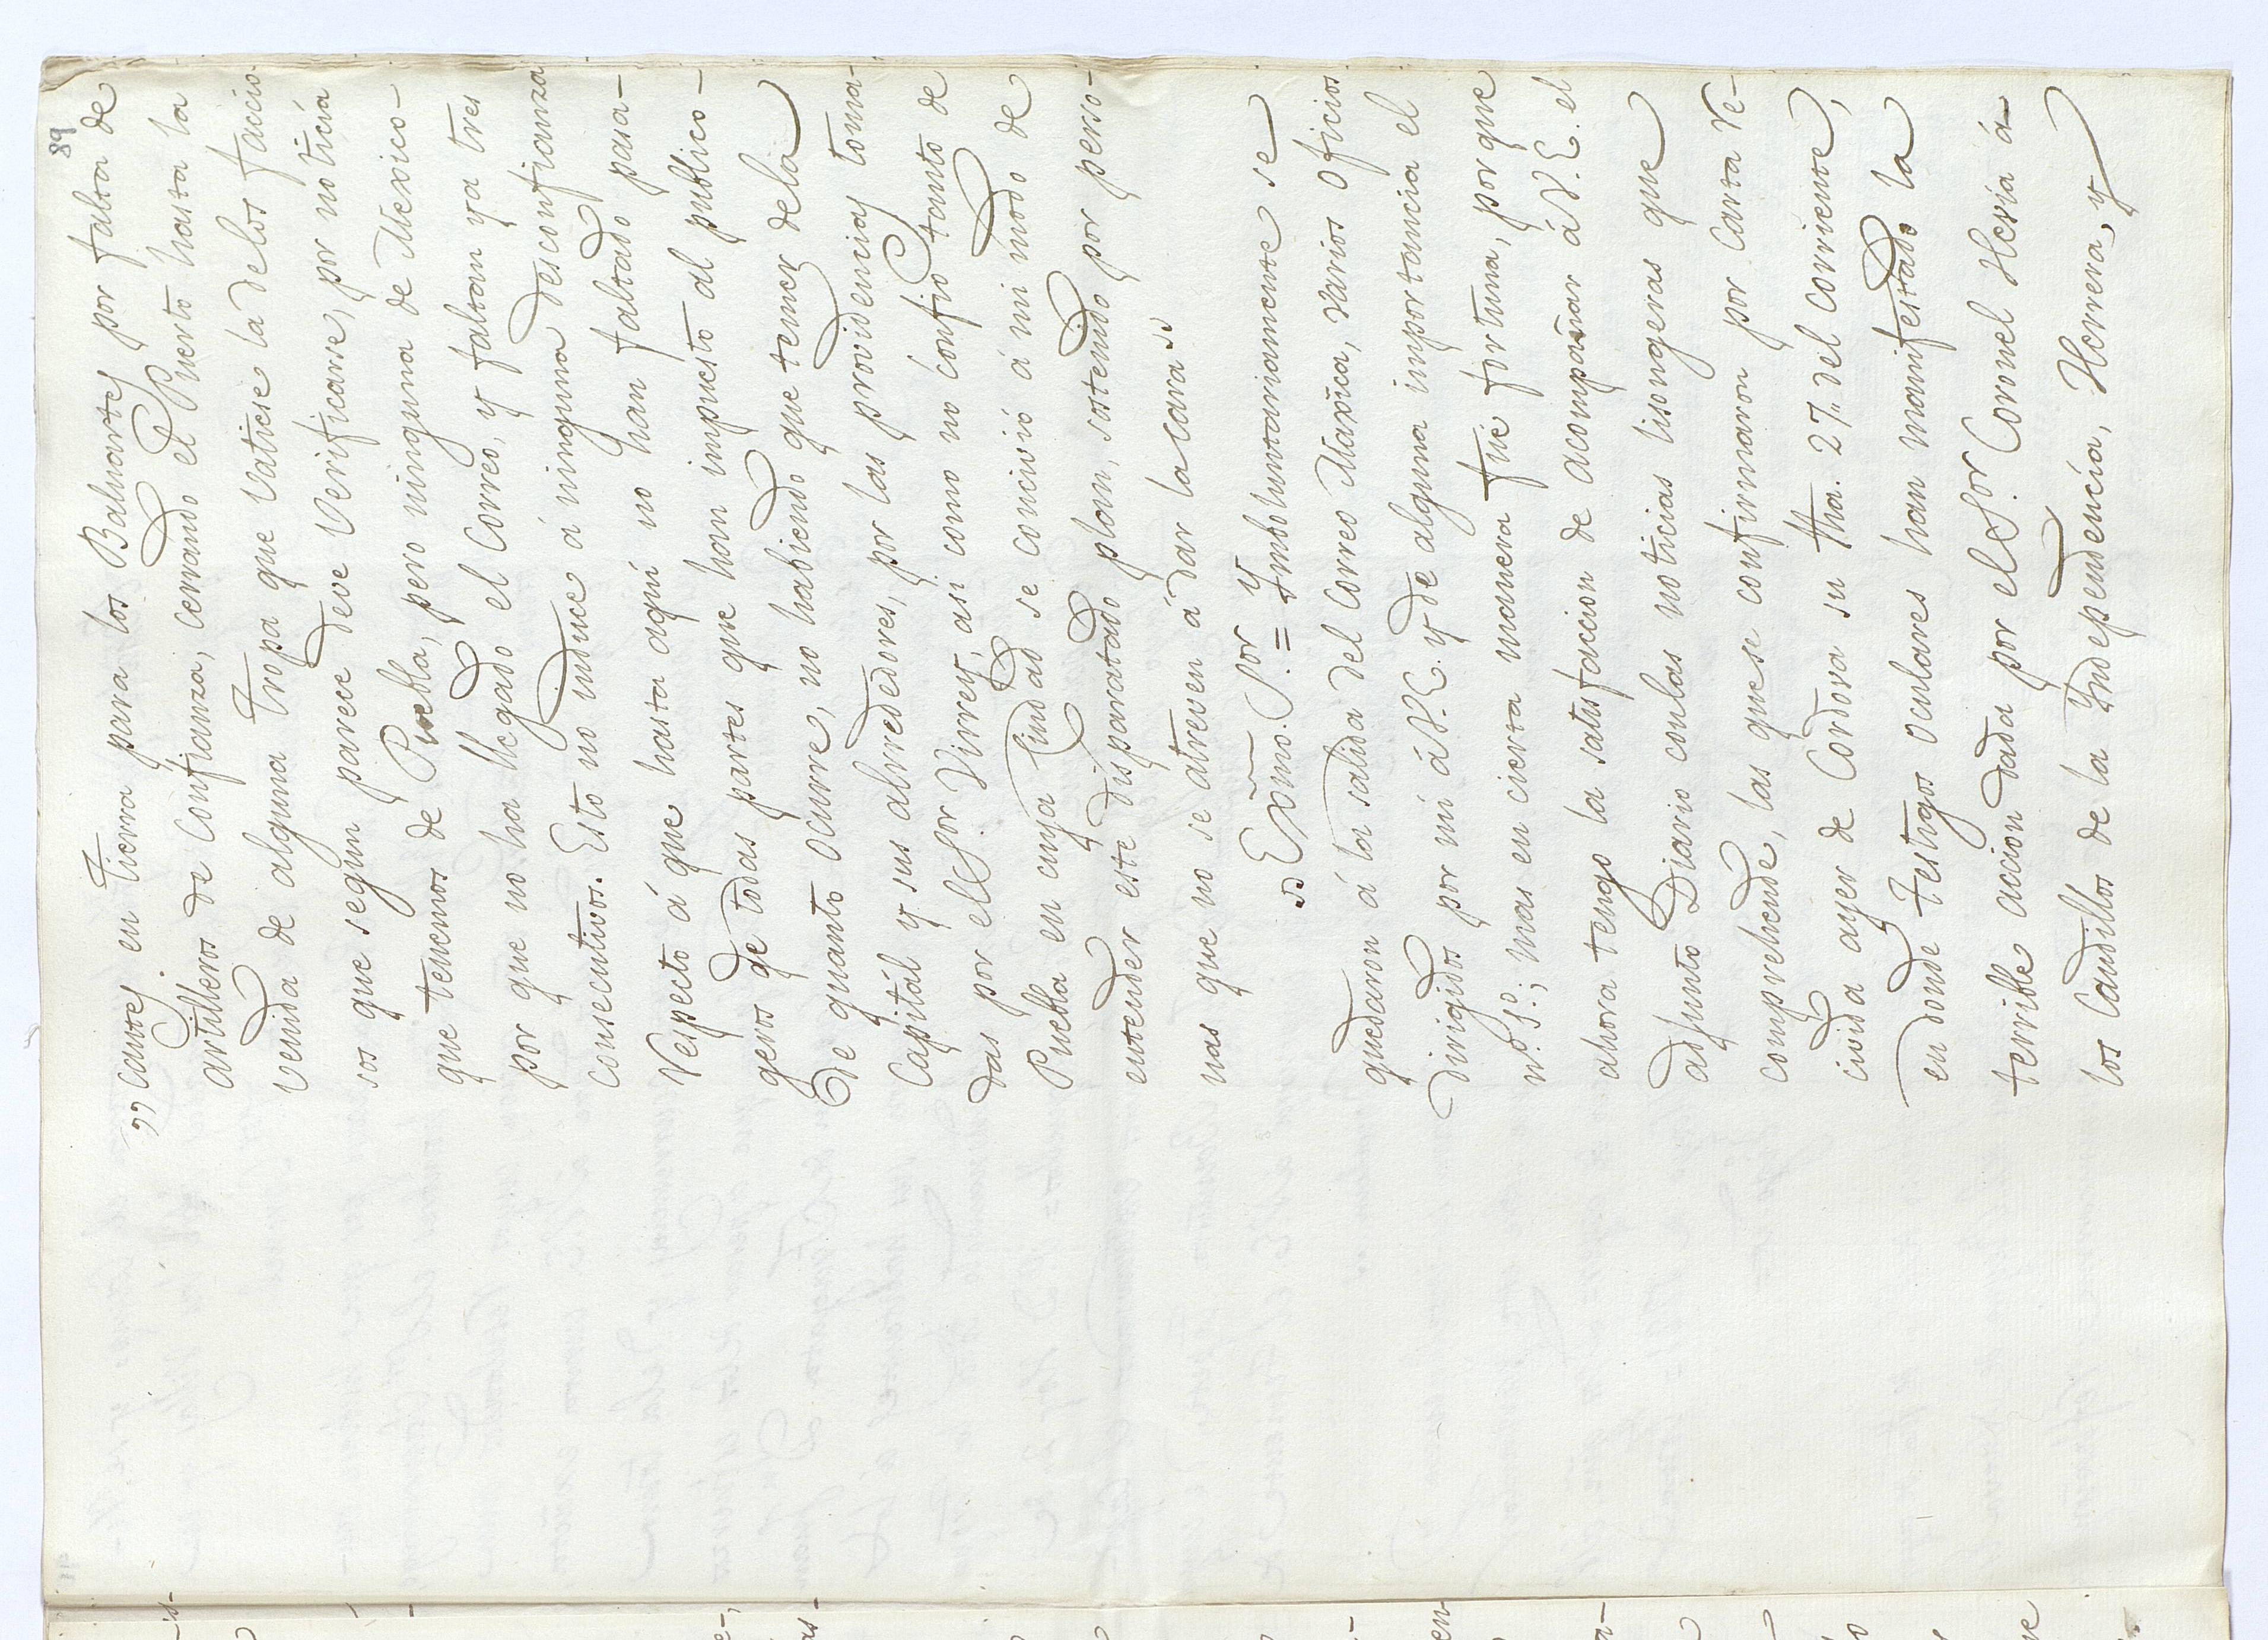 89
"cantes en Tierra para los Baluartes por falta de
artilleros de confianza, cerrando el Puerto hasta la
venida de alguna Tropa que vatiese la delos faccio-
sos que segun parece deve verificarse, por noticia
que tenemos de Puebla, pero ninguna de Mexico-
por que no ha llegado el Correo, y faltan ya tres
consecutivos. Esto no induce á ninguna desconfianza
respecto á que hasta aqui no han faltado pasa-
geros de todas partes que han impuesto al publico-
de quanto ocurre, no habiendo que temer dela
Capitál y sus alrededores, por las providencias toma-
das por el Sor. Virrey, asi como no confio tanto de
Puebla en cuya Ciudad se concivió á mi modo de
entender este disparatado plan, sostenido por perso-
nas que no se atreven á dar la cara "
" Exmo. Sor. = Ymboluntariamente se
quedaron á la salida del Correo Maxica, varios oficios
dirigidos por mi á V.E. y de alguna importancia el
nº. 1º.; mas en cierta manera fue fortuna, por que
ahora tengo la satisfaccion de acompañar á V.E. el
adjunto Diario conlas noticias lisongeras que
comprehende, las que se confirmaron por Carta re-
civida ayer de Cordova su fha. 27" del corriente,
en donde testigos oculares han manifestado la
terrible accion dada por el Sor. Coronel Hevia á
los Caudillos de la Yndependencia, Herrera, y